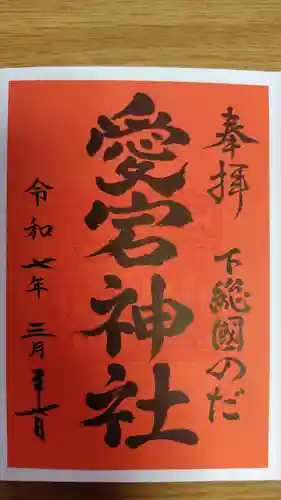 奉拝
下総國のだ
愛宕神社
令和七年 三月